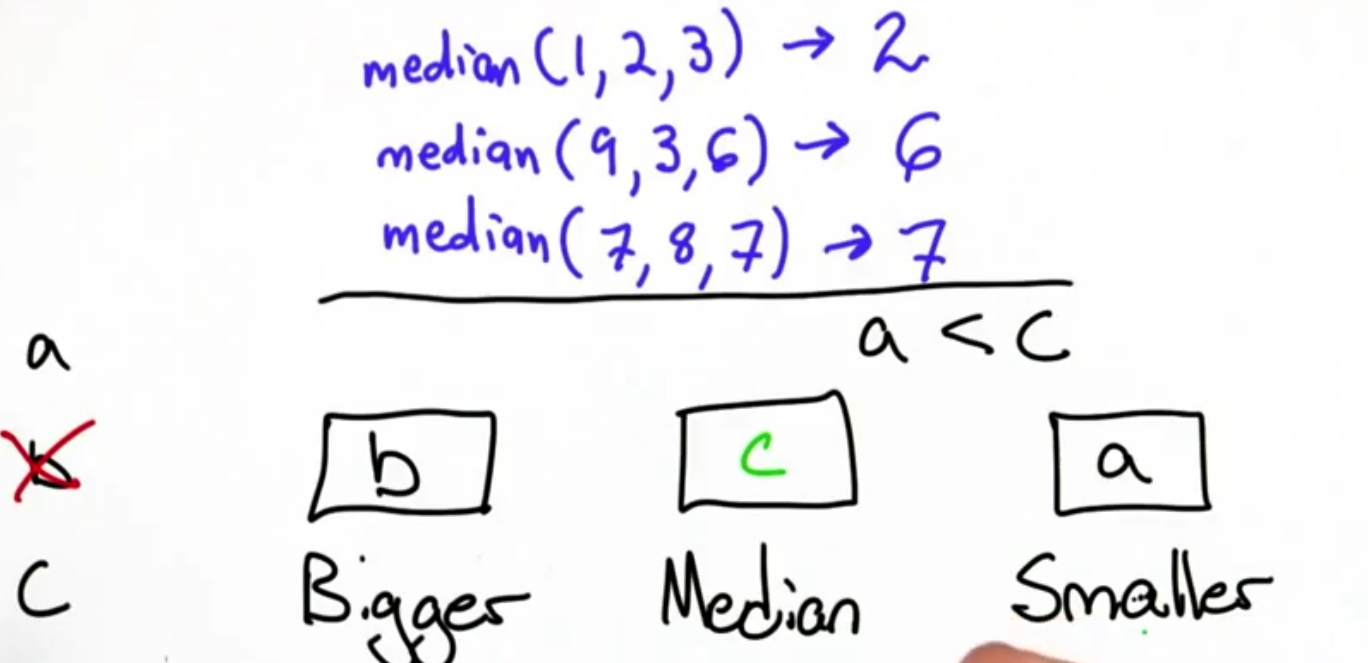 median (1, 2, 3) → 2
median (9, 3, 6) → 6
median (7, 8, 7) → 7
a < c
a
b c a
b
c
Bigger Median Smaller